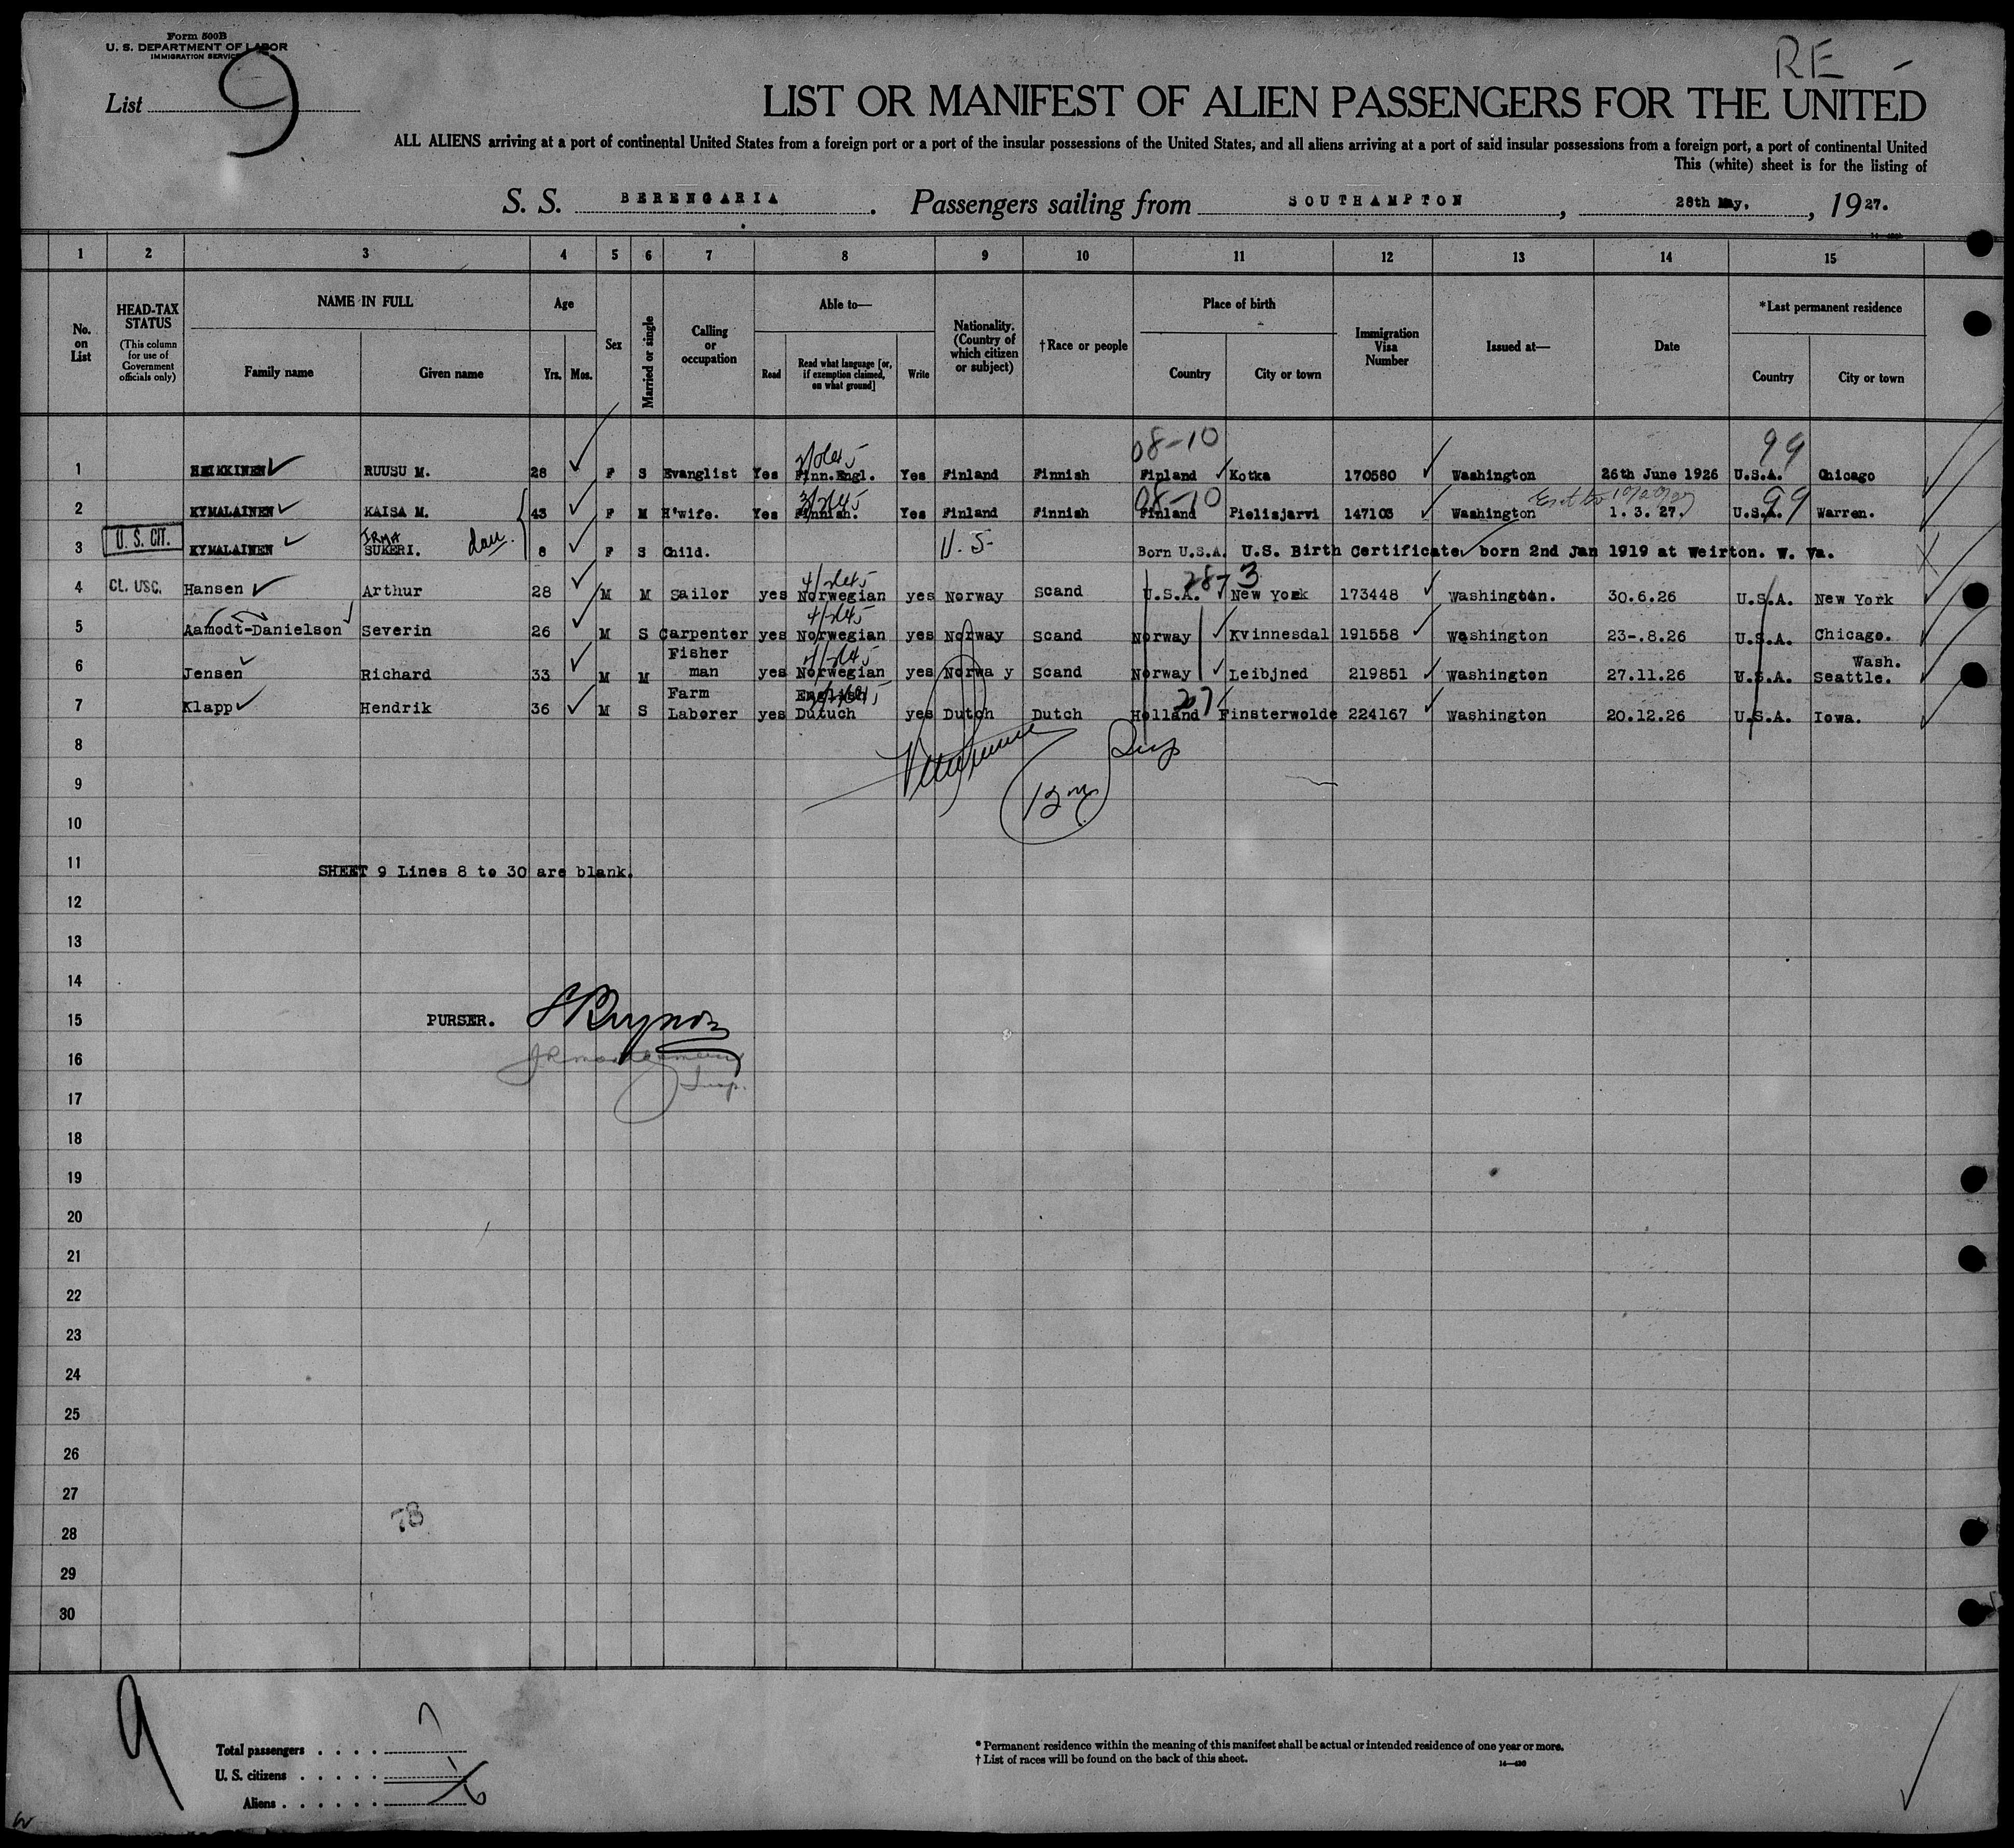 Form 500B
U. S. DEPARTMENT OF LABOR
IMMIGRATION SERVICE
RE -
List 9
LIST OR MANIFEST OF ALIEN PASSENGERS FOR THE UNITED
ALL ALIENS arriving at a port of continental United States from a foreign port or a port of the insular possessions of the United States, and all aliens arriving at a port of said insular possessions from a foreign port, a port of continental United
This (white) sheet is for the listing of
S. S. BERENGARIA. Passengers sailing from SOUTHAMPTON, 28th May, 1927.
1 2 3 4 5 6 7 8 9 10 11 12 13 14 15
No. on List
HEAD-TAX STATUS (This column for use of Government officials only)
NAME IN FULL Family name Given name
Age Yrs. Mos.
Sex
Married or single
Calling or occupation
Able to— Read Read what language [or, if exemption claimed, on what ground] Write
Nationality. (Country of which citizen or subject)
†Race or people
Place of birth Country City or town
Immigration Visa Number
Issued at—
Date
*Last permanent residence Country City or town
08-10 99
1 HEIKKINEN RUUSU M. 28 F S Evanglist Yes Finn.Engl. Yes Finland Finnish Finland Kotka 170580 Washington 26th June 1926 U.S.A. Chicago
08-10 99
2 KYMALAINEN KAISA M. 43 F M H'wife. Yes Finnish. Yes Finland Finnish Finland Pielisjarvi 147103 Washington 1. 3. 27. U.S.A. Warren.
IRMA
3 U. S. CIT. KYMALAINEN SUKERI. dau. 8 F S Child. U.S. Born U.S.A. U.S. Birth Certificate born 2nd Jan 1919 at Weirton. W. Va.
28-3
4 CL. USC. Hansen Arthur 28 M M Sailor yes Norwegian yes Norway Scand U.S.A. New York 173448 Washington. 30.6.26 U.S.A. New York
5 Aamodt-Danielson Severin 26 M S Carpenter yes Norwegian yes Norway Scand Norway Kvinnesdal 191558 Washington 23-.8.26 U.S.A. Chicago.
6 Jensen Richard 33 M M Fisher man yes Norwegian yes Norwa y Scand Norway Leibjned 219851 Washington 27.11.26 U.S.A. Wash. Seattle.
27
7 Klapp Hendrik 36 M S Farm Laborer yes English Dutuch yes Dutch Dutch Holland Finsterwolde 224167 Washington 20.12.26 U.S.A. Iowa.
8
Insp
9
10
11
SHEET 9 Lines 8 to 30 are blank.
12
13
14
15 PURSER.
16
Insp.
17
18
19
20
21
22
23
24
25
26
27
78
28
29
30
9
Total passengers . . . . 7
U. S. citizens . . . . . 1
Aliens . . . . . . 6
* Permanent residence within the meaning of this manifest shall be actual or intended residence of one year or more.
† List of races will be found on the back of this sheet.
14—430